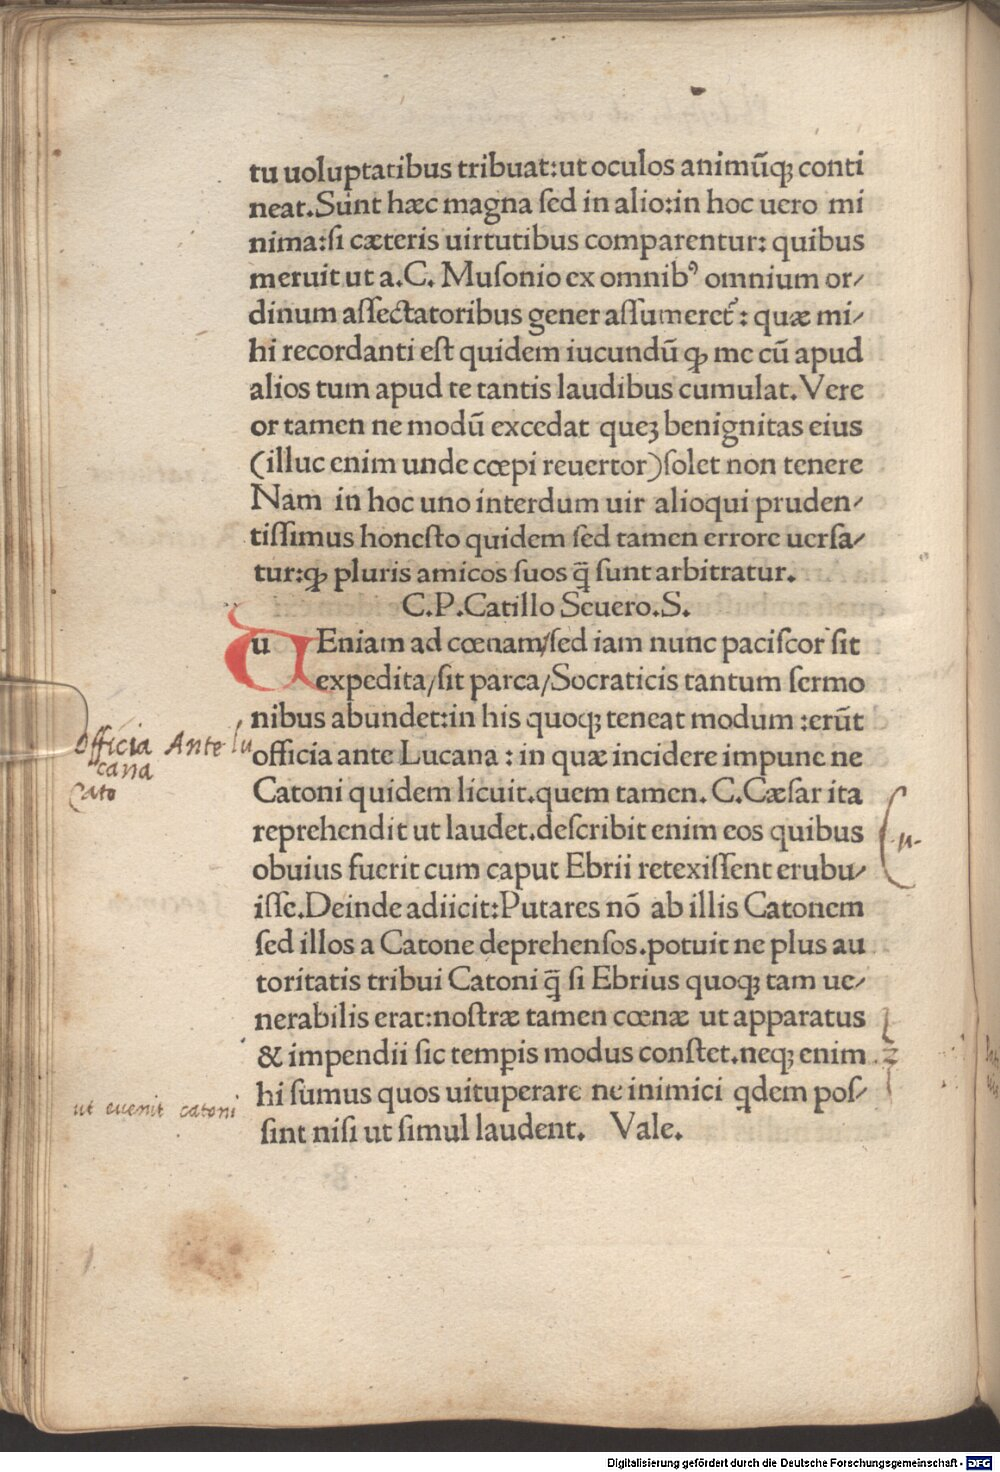 tu uoluptatibus tribuat:ut oculos animũqꝫ conti
neat.Sunt hæc magna ſed in alio:in hoc uero mi
nima:ſi cæteris uirtutibus comparentur: quibus
meruit ut a.C. Muſonio ex omnibꝰ omnium or/
dinum aſſectatoribus gener aſſumeret᷑: quæ mi/
hi recordanti eſt quidem iucundũ ꝙ me cũ apud
alios tum apud te tantis laudibus cumulat. Vere
or tamen ne modũ excedat queꝫ benignitas eius
(illuc enim unde cœpi reuertor)ſolet non tenere
Nam in hoc uno interdum uir alioqui pruden/
tiſſimus honeſto quidem ſed tamen errore uerſa/
tur:ꝙ pluris amicos ſuos q̃ ſunt arbitratur.
C.P.Catillo Seuero.S.
uEniam ad cœnam/ſed iam nunc paciſcor ſit
expedita/ſit parca/Socraticis tantum ſermo
nibus abundet:in his quoqꝫ teneat modum :erũt
Officia Ante lu
cana
officia ante Lucana : in quæ incidere impune ne
Cato
Catoni quidem licuit.quem tamen. C.Cæſar ita
reprehendit ut laudet.deſcribit enim eos quibus
obuius fuerit cum caput Ebrii retexiſſent erubu/
iſſe.Deinde adiicit:Putares nõ ab illis Catonem
ſed illos a Catone deprehenſos.potuit ne plus au
toritatis tribui Catoni q̃ ſi Ebrius quoqꝫ tam ue/
nerabilis erat:noſtræ tamen cœnæ ut apparatus
& impendii ſic temꝑis modus conſtet.neqꝫ enim
ut euenit catoni
hi ſumus quos uituperare ne inimici qdem poſ/
ſint niſi ut ſimul laudent. Vale.
Digitalisierung gefördert durch die Deutsche Forschungsgemeinschaft - DFG